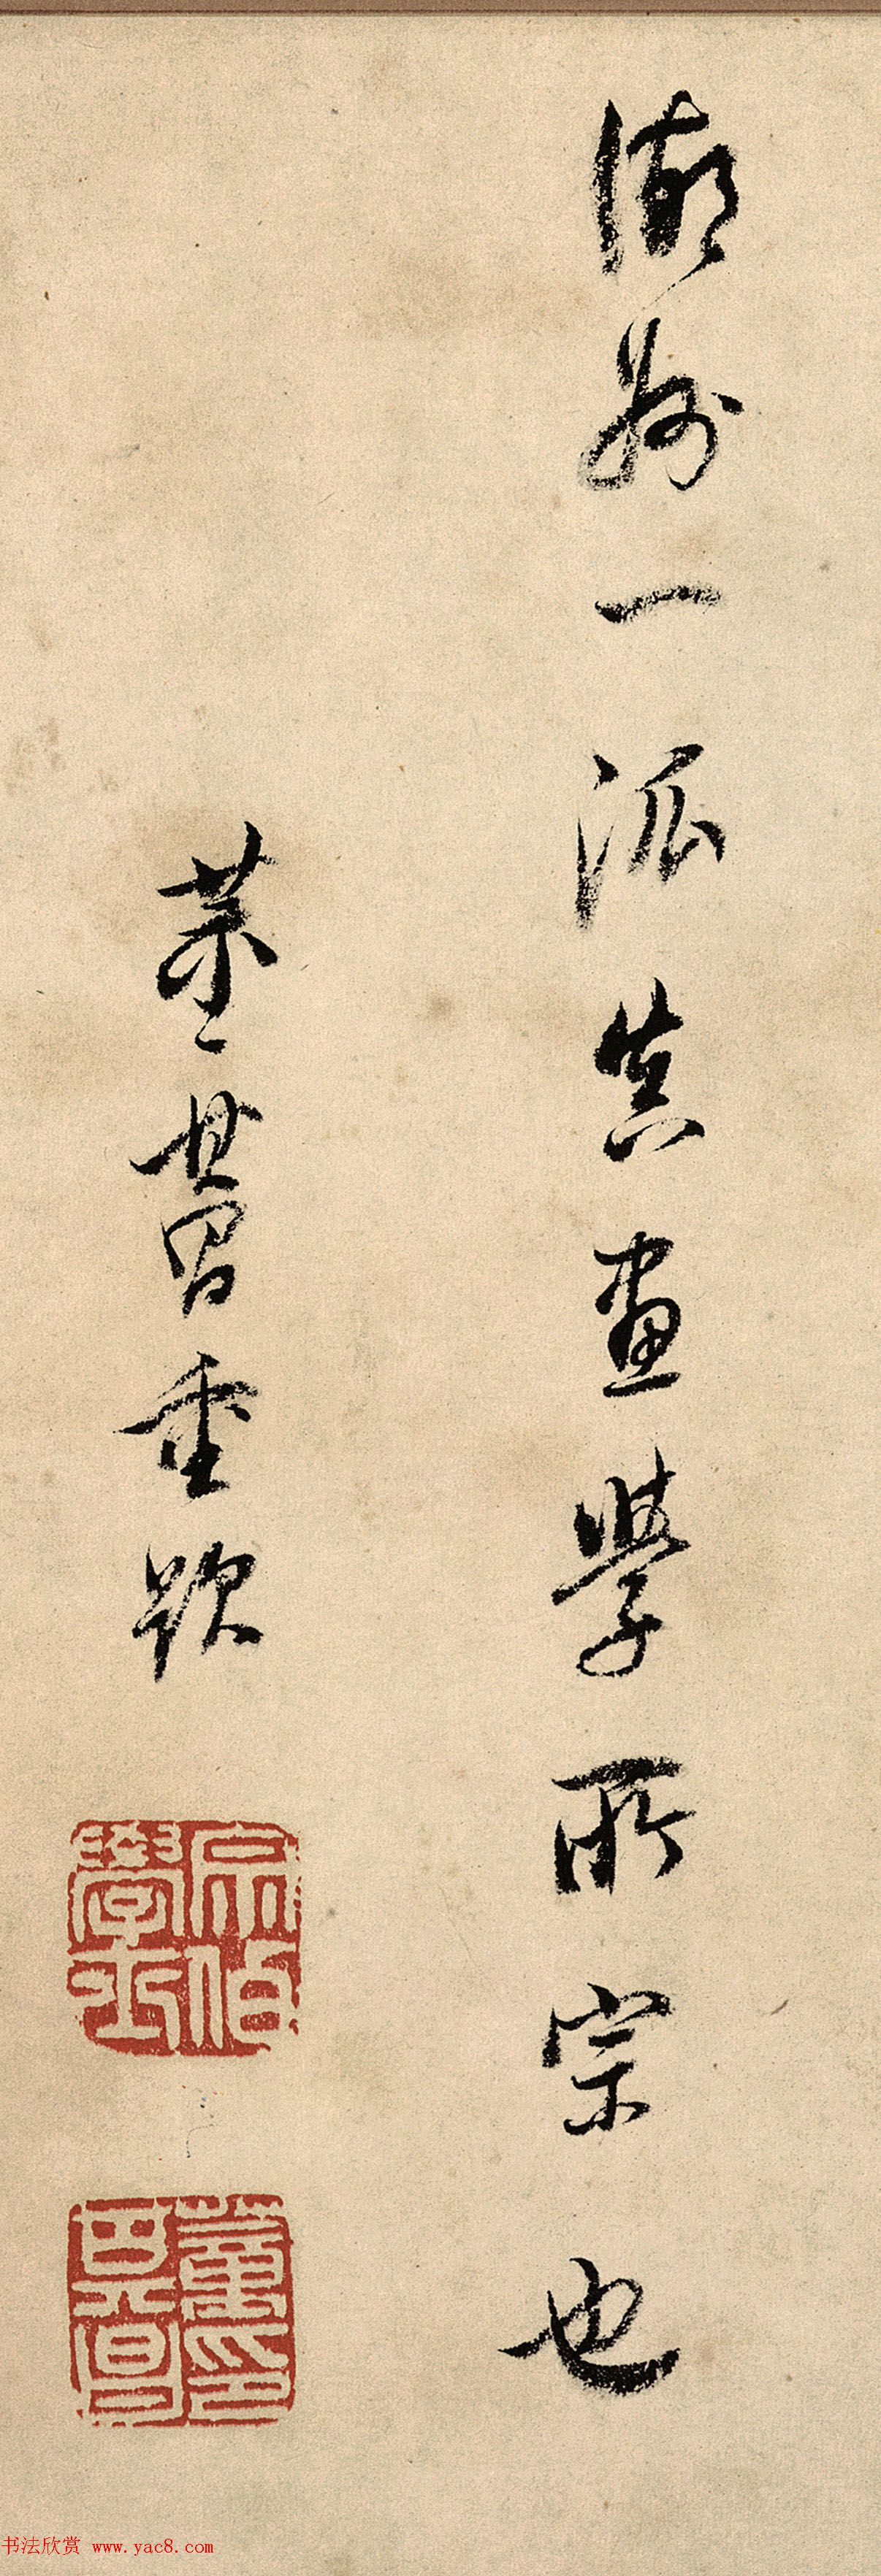 湖州一派真畫學所宗也
董其昌重題
宗伯學士
董其昌印
书法欣赏 www.yac8.com